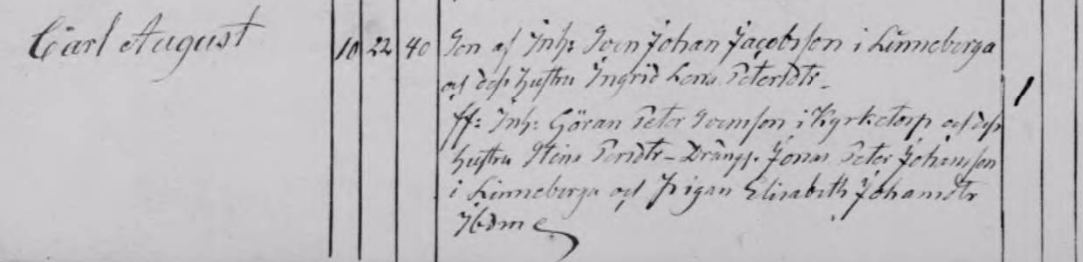 Carl August 10 22 40 Son af Inh: Sven Johan Jacobsson i Linneberga
och dess hustru Ingrid Lena Petersdtr.
ff: Inh: Göran Peter Svensson i Kyrketorp och dess
hustru Stina Persdtr – Drängn Jonas Peter Johansson
i Linneberga och Pigan Elisabeth Johansdtr
Ibdm